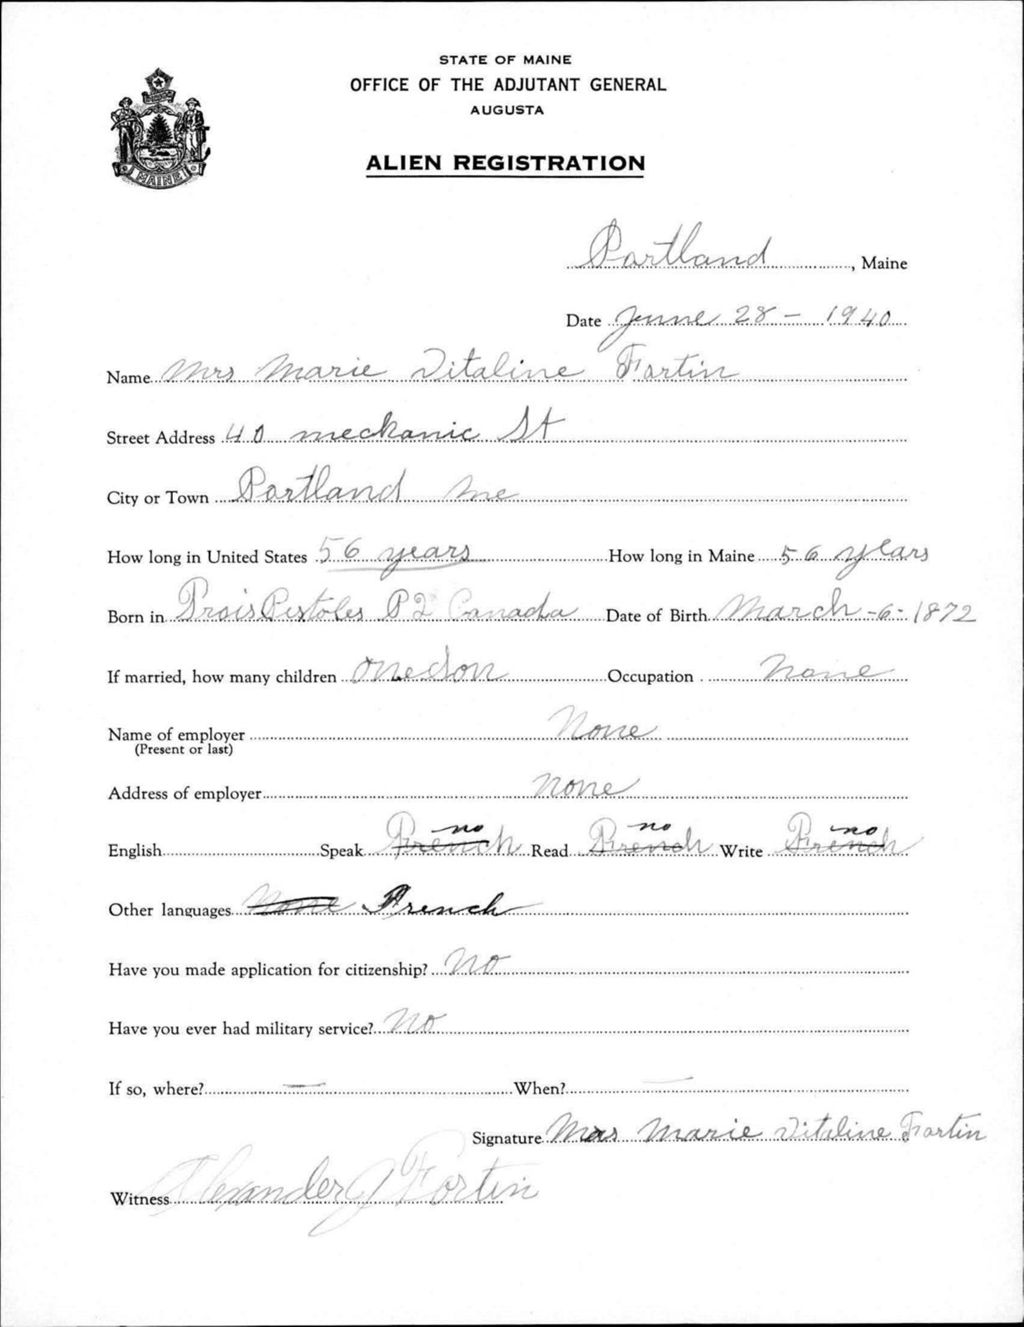 STATE OF MAINE
OFFICE OF THE ADJUTANT GENERAL
AUGUSTA
MAINE
ALIEN REGISTRATION
Portland, Maine
Date June 28 - 1940
Name Mrs Marie Vitaline Fortin
Street Address 40 mechanic St
City or Town Portland me
How long in United States 56 years How long in Maine 56 years
Born in Trois Pistoles P2 Canada Date of Birth March -6- 1872
If married, how many children one son Occupation none
Name of employer None
(Present or last)
Address of employer none
English Speak French no Read French no Write French no
Other languages None French
Have you made application for citizenship? No
Have you ever had military service? No
If so, where? — When? —
Signature Mrs Marie Vitaline Fortin
Witness Alexander J Fortin